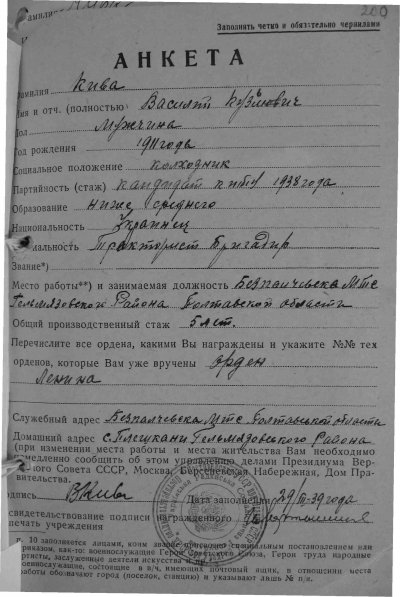 Фамилия
260
Заполнять четко и обязательно чернилами
АНКЕТА
Фамилия Кива
Имя и отч. (полностью) Василий Кузмович
Пол Мужчина
Год рождения 1911 года
Социальное положение колходник
Партийность (стаж) кандидат 1938 года
Образование ниже среднего
Национальность Украинец
альность Тракторист Бригадир
Звание*)
Место работы**) и занимаемая должность Безпалчевска МТС
Гельмязовского Района Полтавской области
Общий производственный стаж 5 лет.
Перечислите все ордена, какими Вы награждены и укажите №№ тех
орденов, которые Вам уже вручены орден
Ленина
Служебный адрес Безпалчевска МТС Полтавськой области
Домашний адрес с. Плешкани Гельмязовського Района
(при изменении места работы и места жительства Вам необходимо
немедленно сообщить об этом управлению делами Президиума Вер-
ного Совета СССР, Москва, Берсеневская Набережная, Дом Пра-
вительства.
одпись ВКива Дата заполнения 29/III-39 года
свидетельствование подписи награжденного
печать учреждения
п. 10 заполняется лицами, коим звание присвоено специальным постановлением или
приказом, как-то: военнослужащие Герои Советского Союза, Герои труда народные
артисты, заслуженные деятели искусства и пр.
военнослужащие, состоящие в в/ч, имеющих почтовый ящик, в отношении места
работы обозначают город (поселок, станцию) и указывают лишь № п/я.